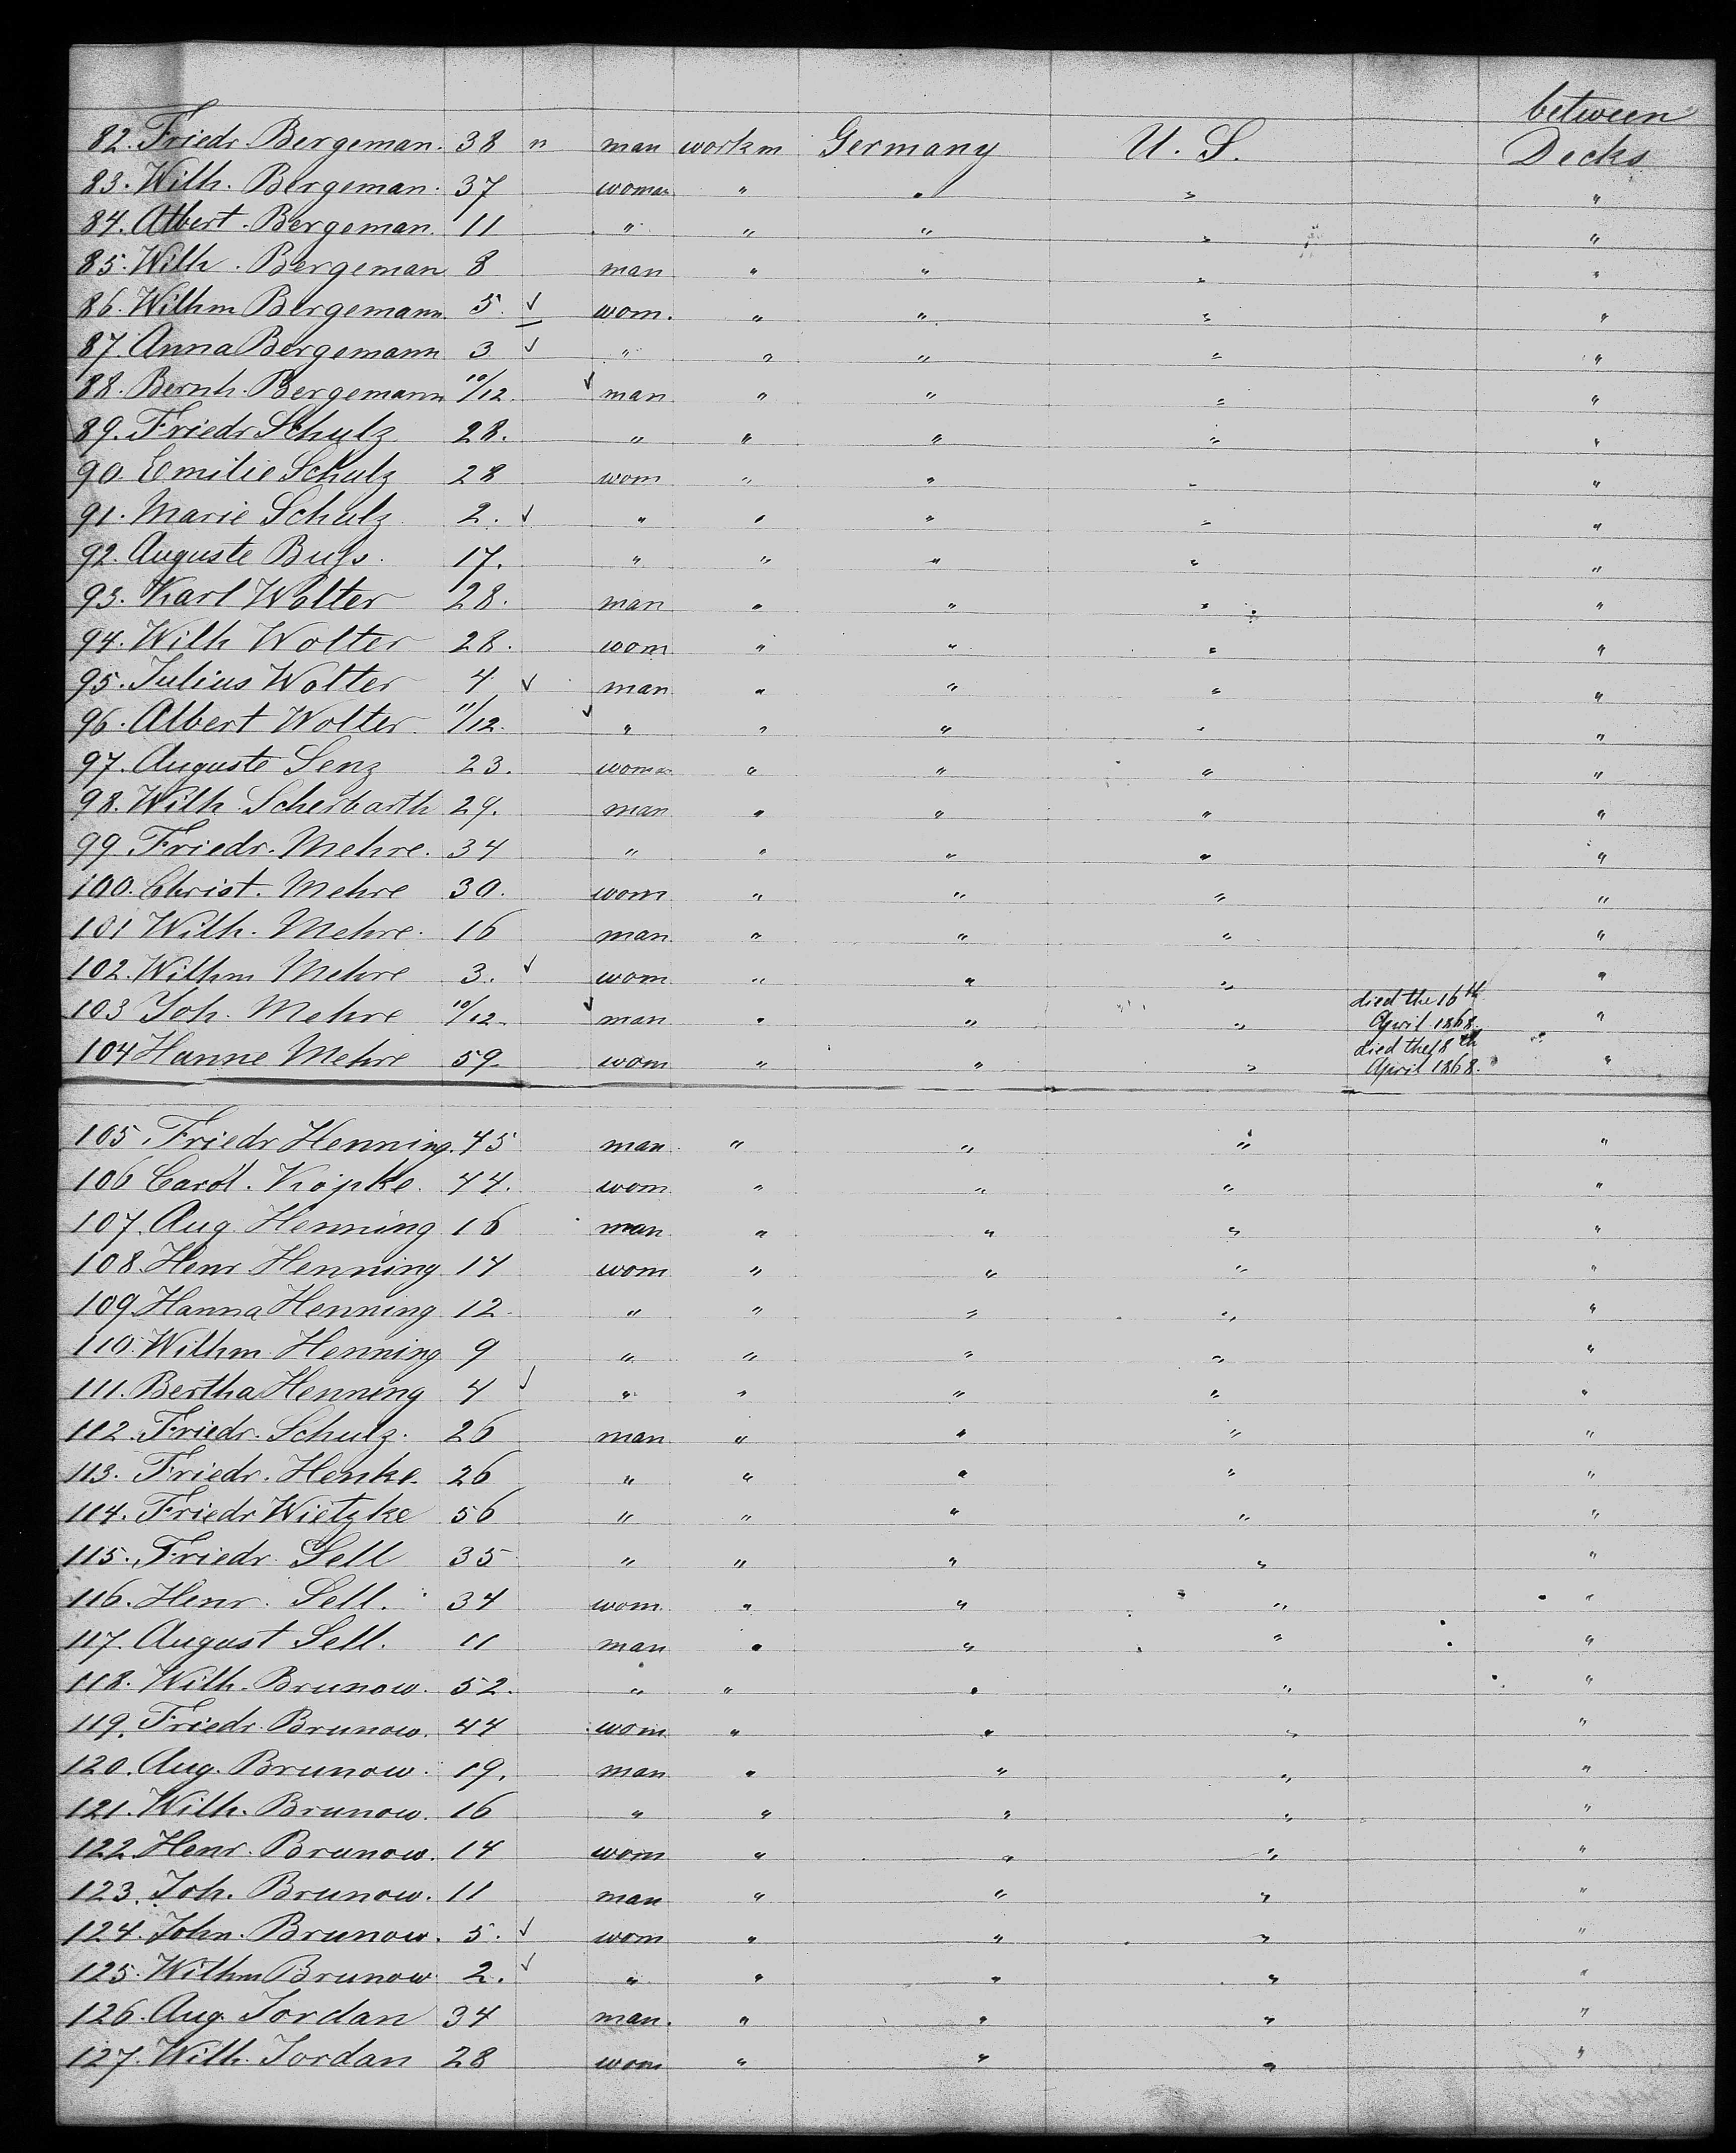 between
82. Friedr. Bergeman. 38 " man workm Germany U. S. Decks
83. Wilh. Bergeman. 37 woman " " " "
84. Albert. Bergeman. 11 " " " " "
85. Wilh. Bergeman 8 man " " " "
86. Wilhm Bergemann 5. ✓ wom. " " " "
87. Anna Bergemann 3 ✓ " " " " "
88. Bernh. Bergemann 10/12. ✓ man " " " "
89. Friedr Schulz 28. " " " " "
90. Emilie Schulz 28 wom " " " "
91. Marie Schulz 2. ✓ " " " " "
92. Auguste 17. " " " " "
93. Karl Wolter 28. man " " " "
94. Wilh Wolter 28. wom " " " "
95. Julius Wolter 4 ✓ man " " " "
96. Albert Wolter. 11/12. ✓ " " " " "
97. Auguste Senz 23. woman " " " "
98. Wilh. Scherbarth 29. man " " " "
99 Friedr. Mehre. 34 " " " " "
100. Christ. Mehre 30. wom " " " "
101 Wilh. Mehre. 16 man " " " "
102. Wilhm Mehre 3. ✓ wom " " " "
103 Joh. Mehre 10/12. ✓ man " " " died the 16th April 1868. "
104 Hanne Mehre 59. wom " " " died the 18th April 1868. "
105. Friedr Henning. 45 man " " " "
106 Carol. Köpke. 44. wom " " " "
107. Aug. Henning 16 man " " " "
108. Henr Henning 14 wom " " " "
109. Hanna Henning 12. " " " " "
110. Wilhm Henning 9 " " " " "
111. Bertha Henning 4 ✓ " " " " "
112. Friedr. Schulz. 26 man " " " "
113. Friedr. Henke. 26 " " " " "
114. Friedr Wietzke 56 " " " " "
115. Friedr. Sell 35 " " " " "
116. Henr. Sell. 34 wom. " " " "
117. August Sell. 11 man " " " "
118. Wilh. Brunow. 52. " " " " "
119. Friedr. Brunow. 44 wom " " " "
120. Aug. Brunow. 19. man " " " "
121. Wilh. Brunow. 16 " " " " "
122. Henr. Brunow. 14 wom " " " "
123. Joh. Brunow. 11 man " " " "
124. John. Brunow. 5. ✓ wom " " " "
125. Wilhm Brunow 2. ✓ " " " " "
126. Aug. Jordan 34 man. " " " "
127. Wilh. Jordan 28 wom " " " "